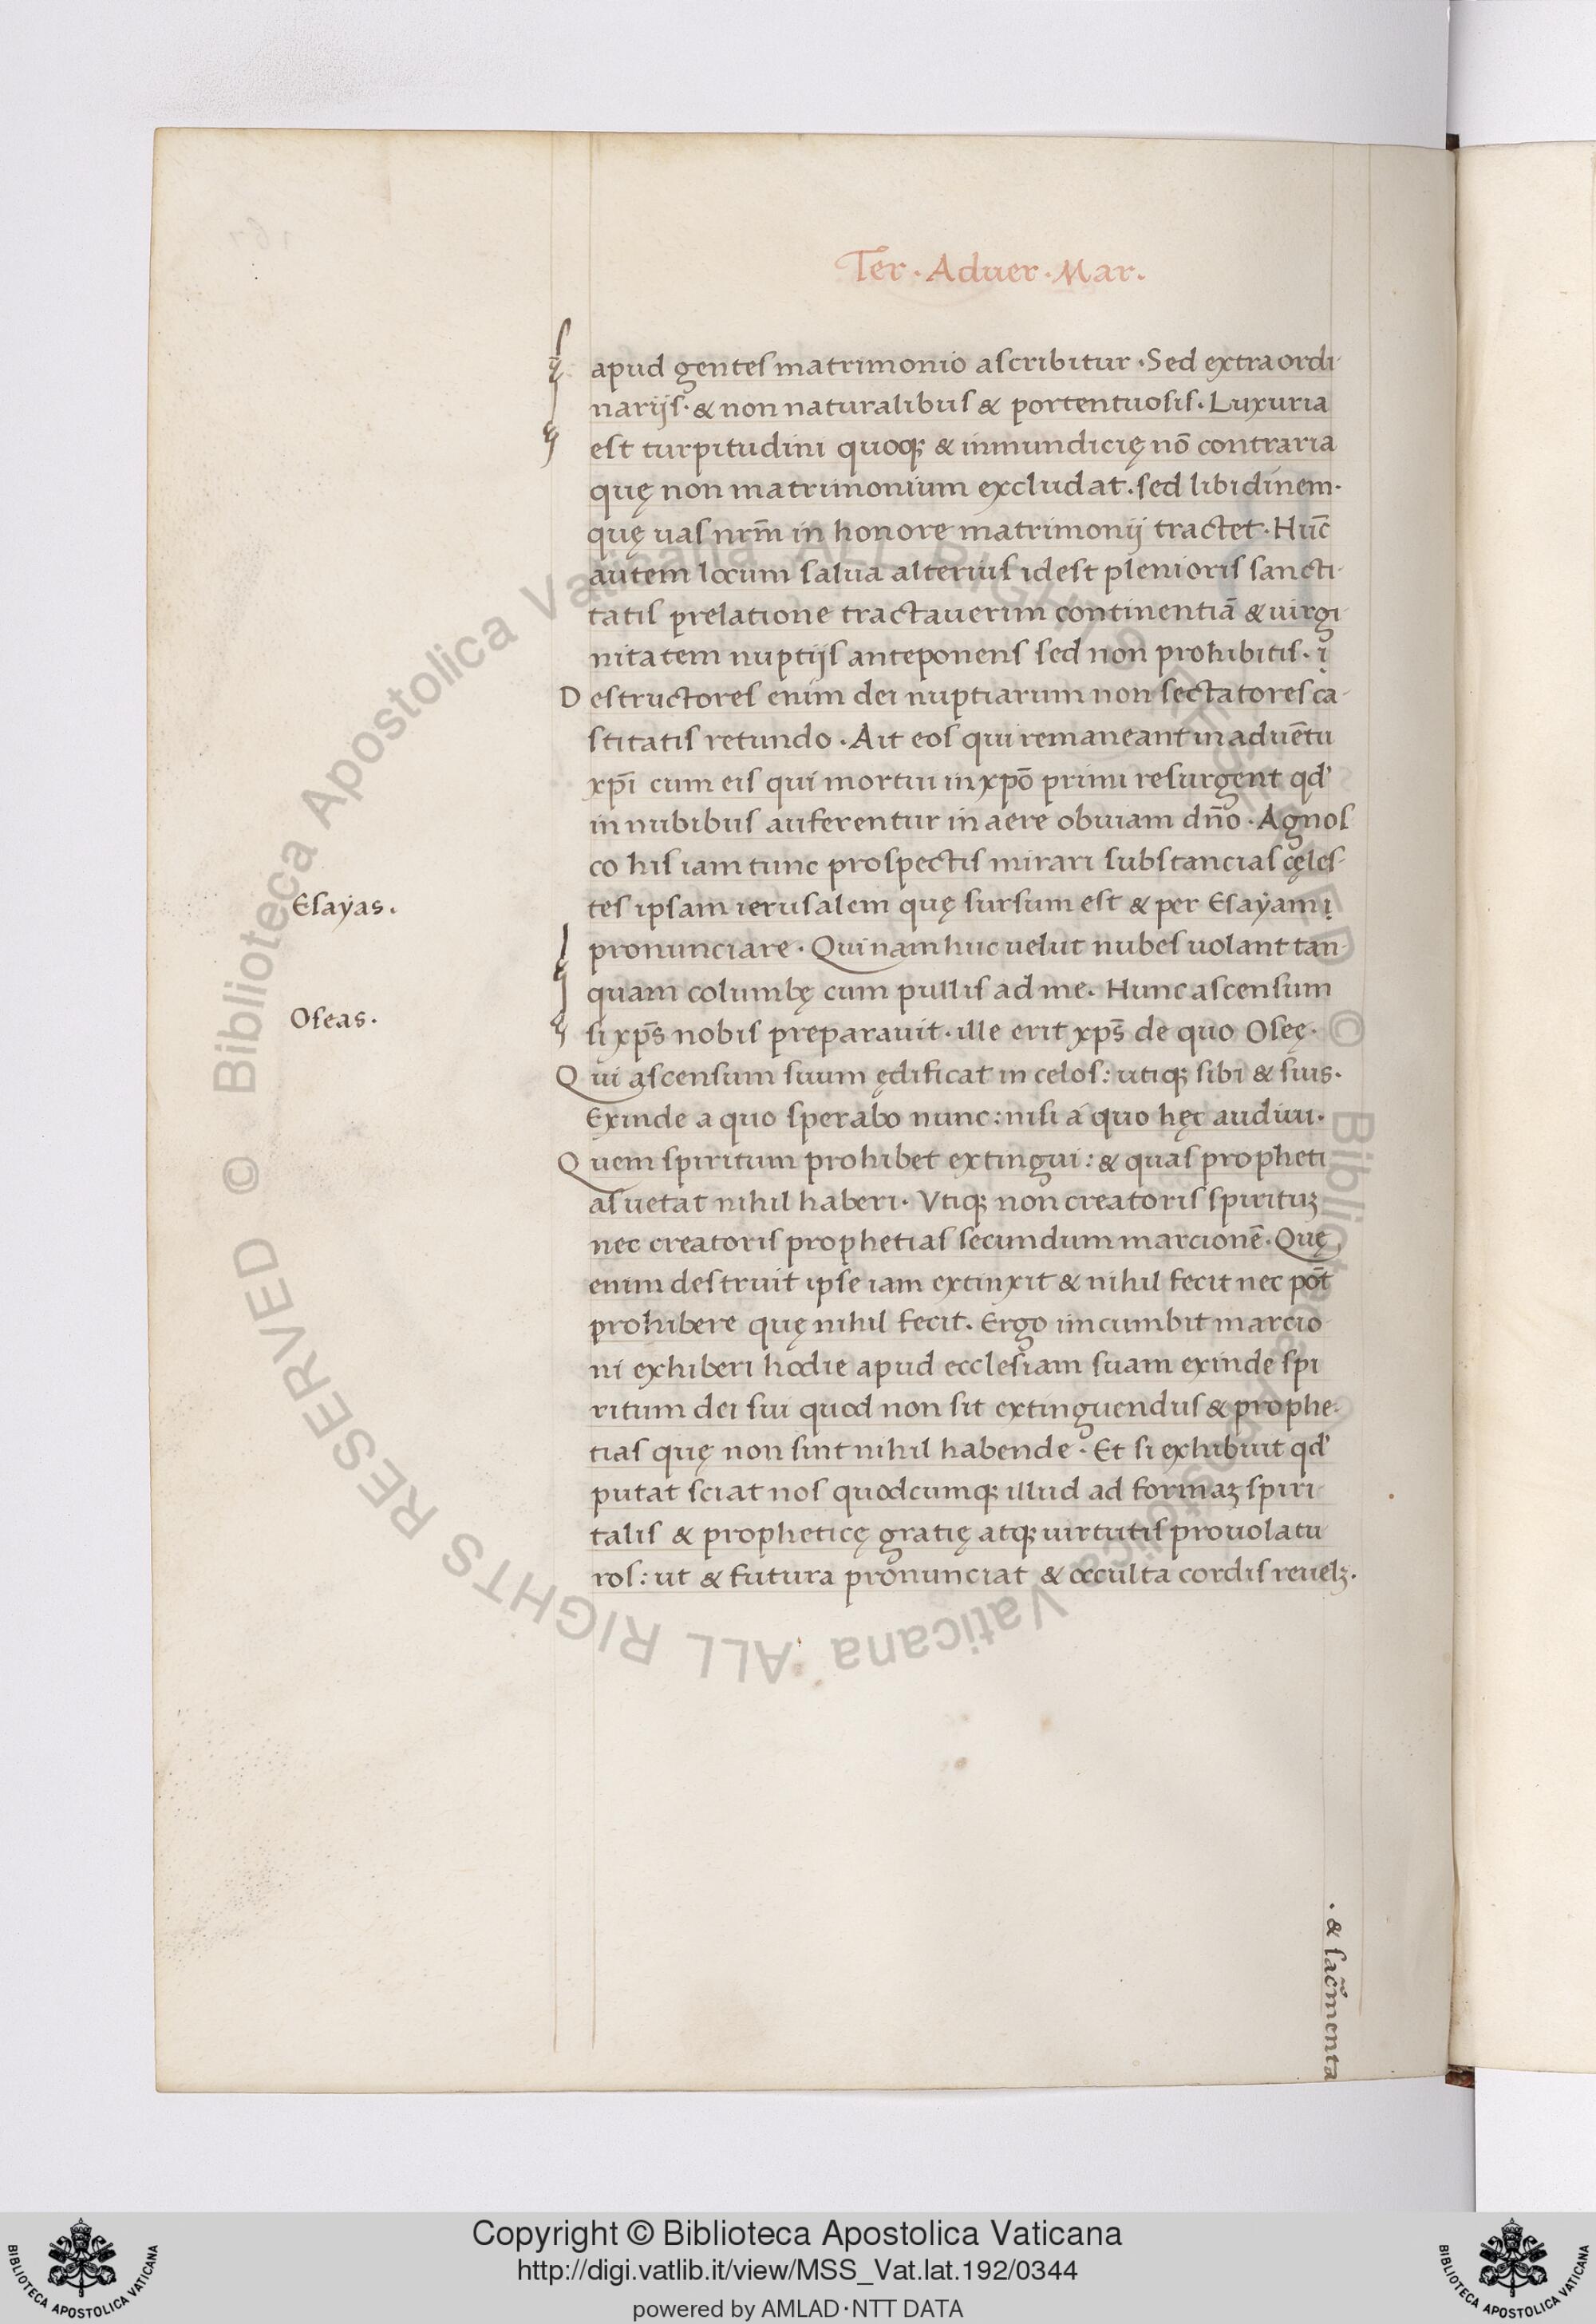 Ter. Aduer. Mar.
apud gentes matrimonio ascribitur. Sed extraordi-
narijs. & non naturalibus & portentuosis. Luxuria
est turpitudini quoq; & inmundicię nō contraria
quę non matrimonium excludat. sed libidinem.
quę uas nrm̄ in honore matrimonij tractet. Hūc
autem locum salua alterius idest plenioris sancti-
tatis prelatione tractauerim continentiā & uirgi-
nitatem nuptijs anteponens sed non prohibitis.
Destructores enim dei nuptiarum non sectatores ca-
stitatis retundo. Ait eos qui remaneant in aduētu
xpī cum eis qui mortui in xpō primi resurgent qd'
in nubibus auferentur in aere obuiam dn̄o. Agnos
co his iam tunc prospectis mirari substancias cęles-
tes ipsam ierusalem quę sursum est & per Esaÿam
pronunciare. Qui nam huc uelut nubes uolant tan-
quam columbę cum pullis ad me. Hunc ascensum
si xps̄ nobis preparauit. ille erit xps̄ de quo Oseę.
Qui ascensum suum ędificat in celos: utiq; sibi & suis.
Exinde a quo sperabo nunc: nisi á quo hęc audiui.
Quem spiritum prohibet extingui: & quas propheti
as uetat nihil haberi. Vtiq; non creatoris spirituʒ
nec creatoris prophetias secundum marcionē. Quę
enim destruit ipse iam extinxit & nihil fecit nec pōt
prohibere quę nihil fecit. Ergo incumbit marcio-
ni exhiberi hodie apud ecclesiam suam exinde spi
ritum dei sui quod non sit extinguendus & prophe-
tias quę non sint nihil habende. Et si exhibuit qd'
putat sciat nos quodcumq; illud ad formaʒ spiri-
talis & propheticę gratię atq; uirtutis prouolatu
ros: ut & futura pronunciat & occulta cordis reuelʒ.
Esaÿas.
Oseas.
. & sacr̄menta
© Biblioteca Apostolica Vaticana ALL RIGHTS RESERVED © Biblioteca Apostolica Vaticana ALL RIGHTS RESERVED
Copyright © Biblioteca Apostolica Vaticana
http://digi.vatlib.it/view/MSS_Vat.lat.192/0344
powered by AMLAD·NTT DATA
BIBLIOTECA APOSTOLICA VATICANA
BIBLIOTECA APOSTOLICA VATICANA